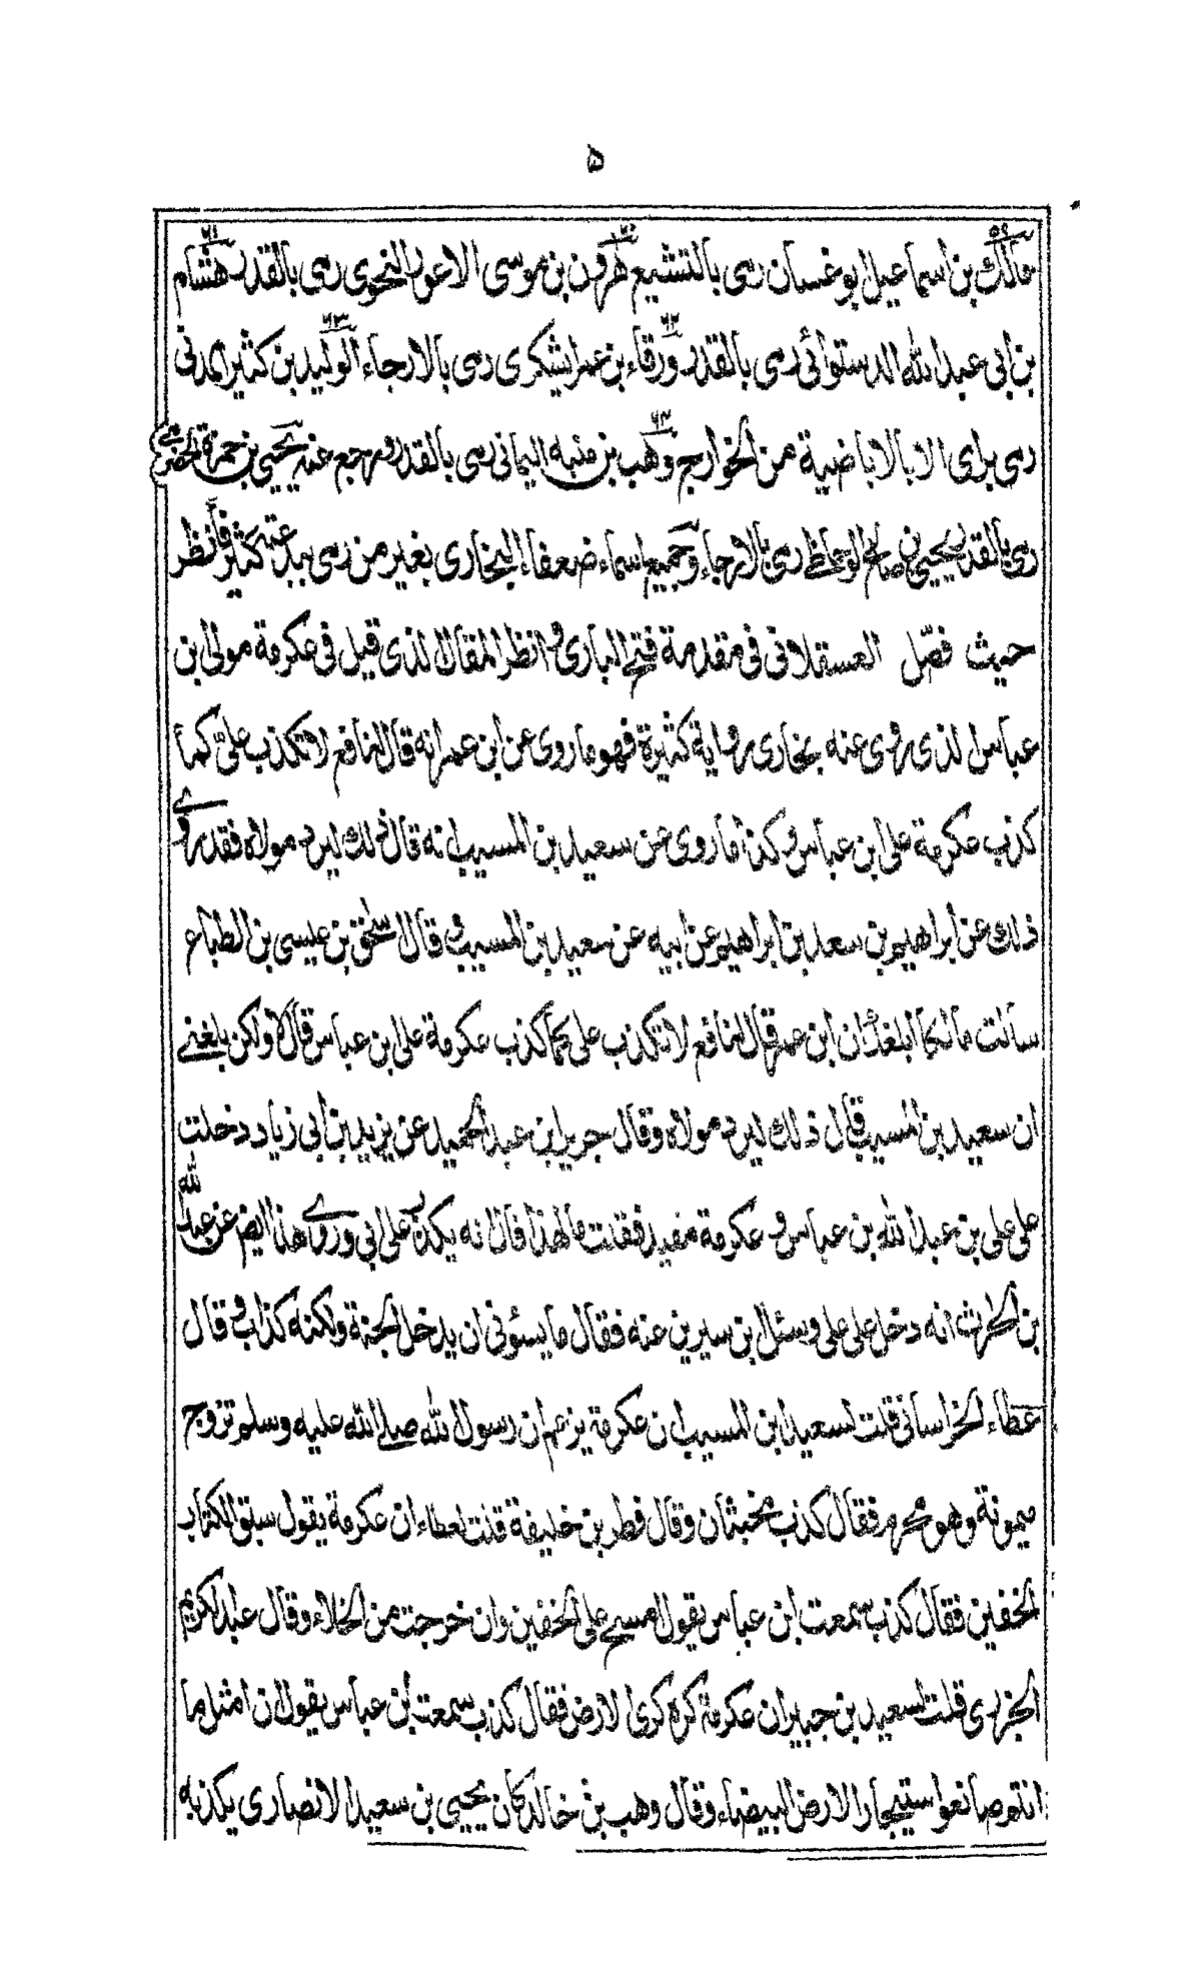 ۵
مالك بن اسماعيل بو غسان رمى بالتشيع هرون بن موسى الاعور النحوى رمى بالقدر هشام
بن ابى عبد الله الدستوائى رمى بالقدر ورقاء بن عمر يشكرى رمى بالارجاء الوليد بن كثير مدنى
رمى براى الابالاباضية من الخوارج وهب بن منبه اليمانى رمى بالقدر ورجع عنه يحيى بن حمزة الحضرمى
رمى بالقدر يحيى بن صالح الوحاظى رمى بالارجاء وجميع اسماء ضعفاء البخارى بغير من رمى ببدعته كثير فانظر
حيث فصّل العسقلانى فى مقدمة فتح البارى وانظر المقال لذى قيل فى عكرمة مولى بن
عباس لذى روى عنه بخارى رواية كثيرة فهو ما روى عن ابن عمر انه قال لنافع لا تكذب علىّ كما
كذب عكرمة على ابن عباس وكذا ما روى عن سعيد بن المسيب انه قال ذلك لبرد مولاه فقد روى
ذلك عن ابراهيم بن سعد بن ابراهيم عن ابيه عن سعيد بن المسيب وقال اسحق بن عيسى بن الطباع
سالت مالكا ابلغك ان ابن عمر قال لنافع لا تكذب على كما كذب عكرمة على ابن عباس قال لا ولكن بلغنى
ان سعيد بن المسيب قال ذلك لبرد مولاه وقال جرير ابن عبد الحميد عن يزيد بن ابى زياد دخلت
على على بن عبد الله بن عباس و عكرمة مقيد فقلت ما لهذا قال انه يكذب على ابى وروى هذا ايضا عن عبد الله
بن الحارث انه دخل على على وسئل ابن سيرين عنه فقال ما يسؤنى ان يدخل الجنة ولكنه كذاب وقال
عطاء الخراسانى قلت لسعيد ابن المسيب ان عكرمة يزعم ان رسول الله صلى الله عليه وسلم تزوج
ميمونة وهو محرم فقال كذب مخبثان وقال فطر بن خليفة قلت لعطاء ان عكرمة يقول سبق الكتاب
الخفين فقال كذب سمعت ابن عباس يقول امسح على الخفين وان خرجت من الخلاء وقال عبد الكريم
الجزرى قلت لسعيد بن جبير ان عكرمة كره كرى الارض فقال كذب سمعت ابن عباس يقول ان امثل ما
انتم صانعوا ستيجار الارض البيضاء وقال وهب بن خالد كان يحيى بن سعيد الانصارى يكذبه